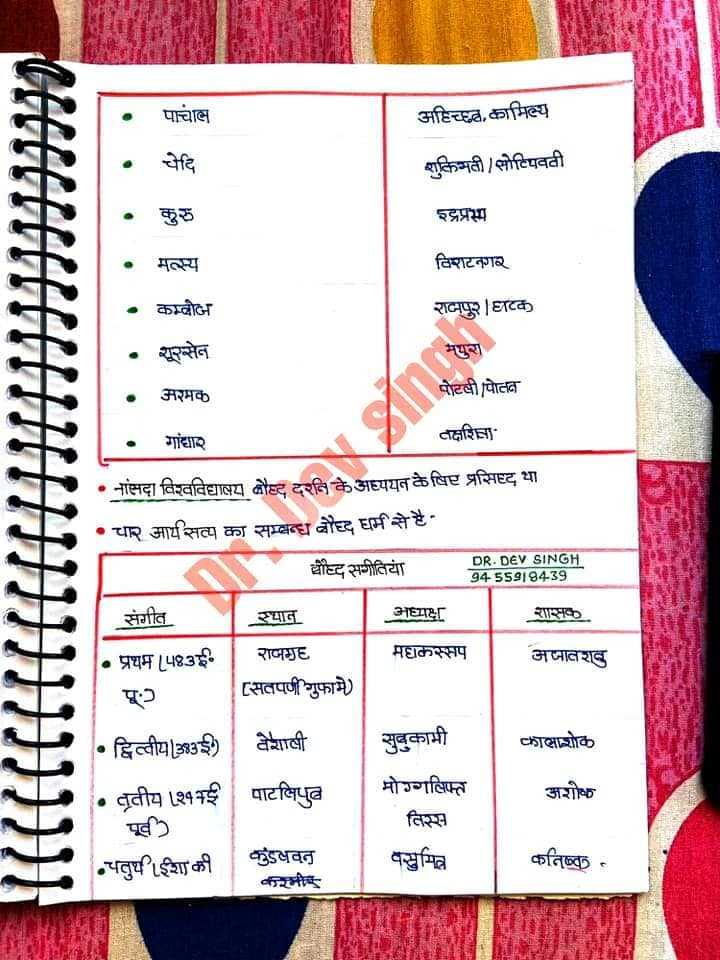 • पाचांल अहिच्छत्र, काम्पिल्य
• चेदि शुक्तिमती / सोटियवती
• कुरु इन्द्रप्रस्थ
• मत्स्य विराटनगर
• कम्बोज राजपुर | हाटक
• शूरसेन मथुरा
• अश्मक पोटली / पोतन
• गांधार तक्षशिला
• नालंदा विश्वविद्यालय बौद्ध दर्शन के अध्ययन के लिए प्रसिद्ध था
• चार आर्य सत्य का सम्बन्ध बौद्ध धर्म से है -
बौद्ध संगीतियां DR. DEV SINGH
9455918439
संगीत स्थान अध्यक्ष शासक
• प्रथम (483ई० राजगृह महाकस्सप अजातशत्रु
पू.) (सतपर्णी गुफा में)
• द्वितीय (383ई) वैशाली सुबुकामी कालाशोक
• तृतीय (247ई पाटलिपुत्र मोग्गलिपुत्त अशोक
पूर्व) तिस्स
• चतुर्थ (ईशा की कुंडलवन वसुमित्र कनिष्क
कश्मीर
Dr. Dev singh